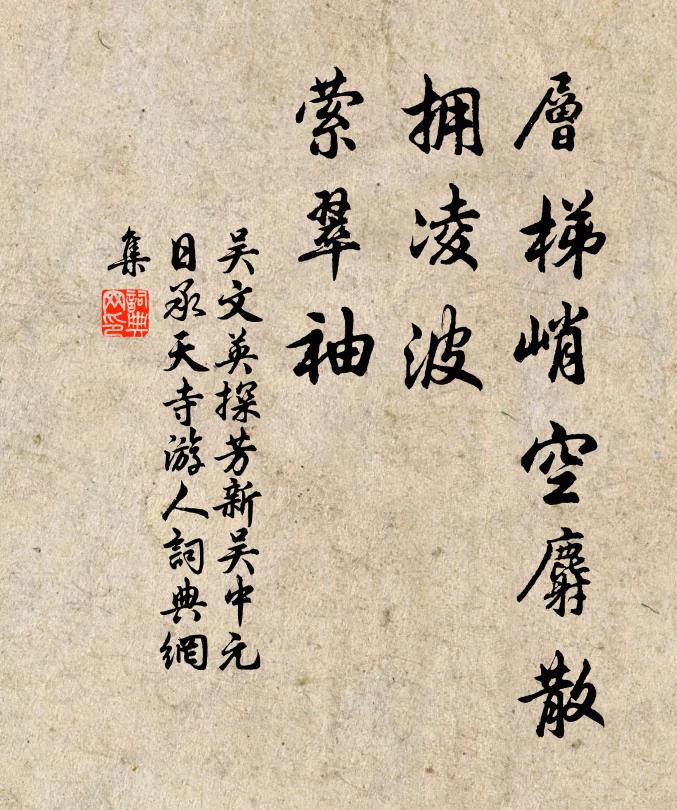 層梯峭空麝散
拥凌波
萦翠袖
吴文英探芳新吴中元
日承天寺游人詞典網
集
詞典
网印